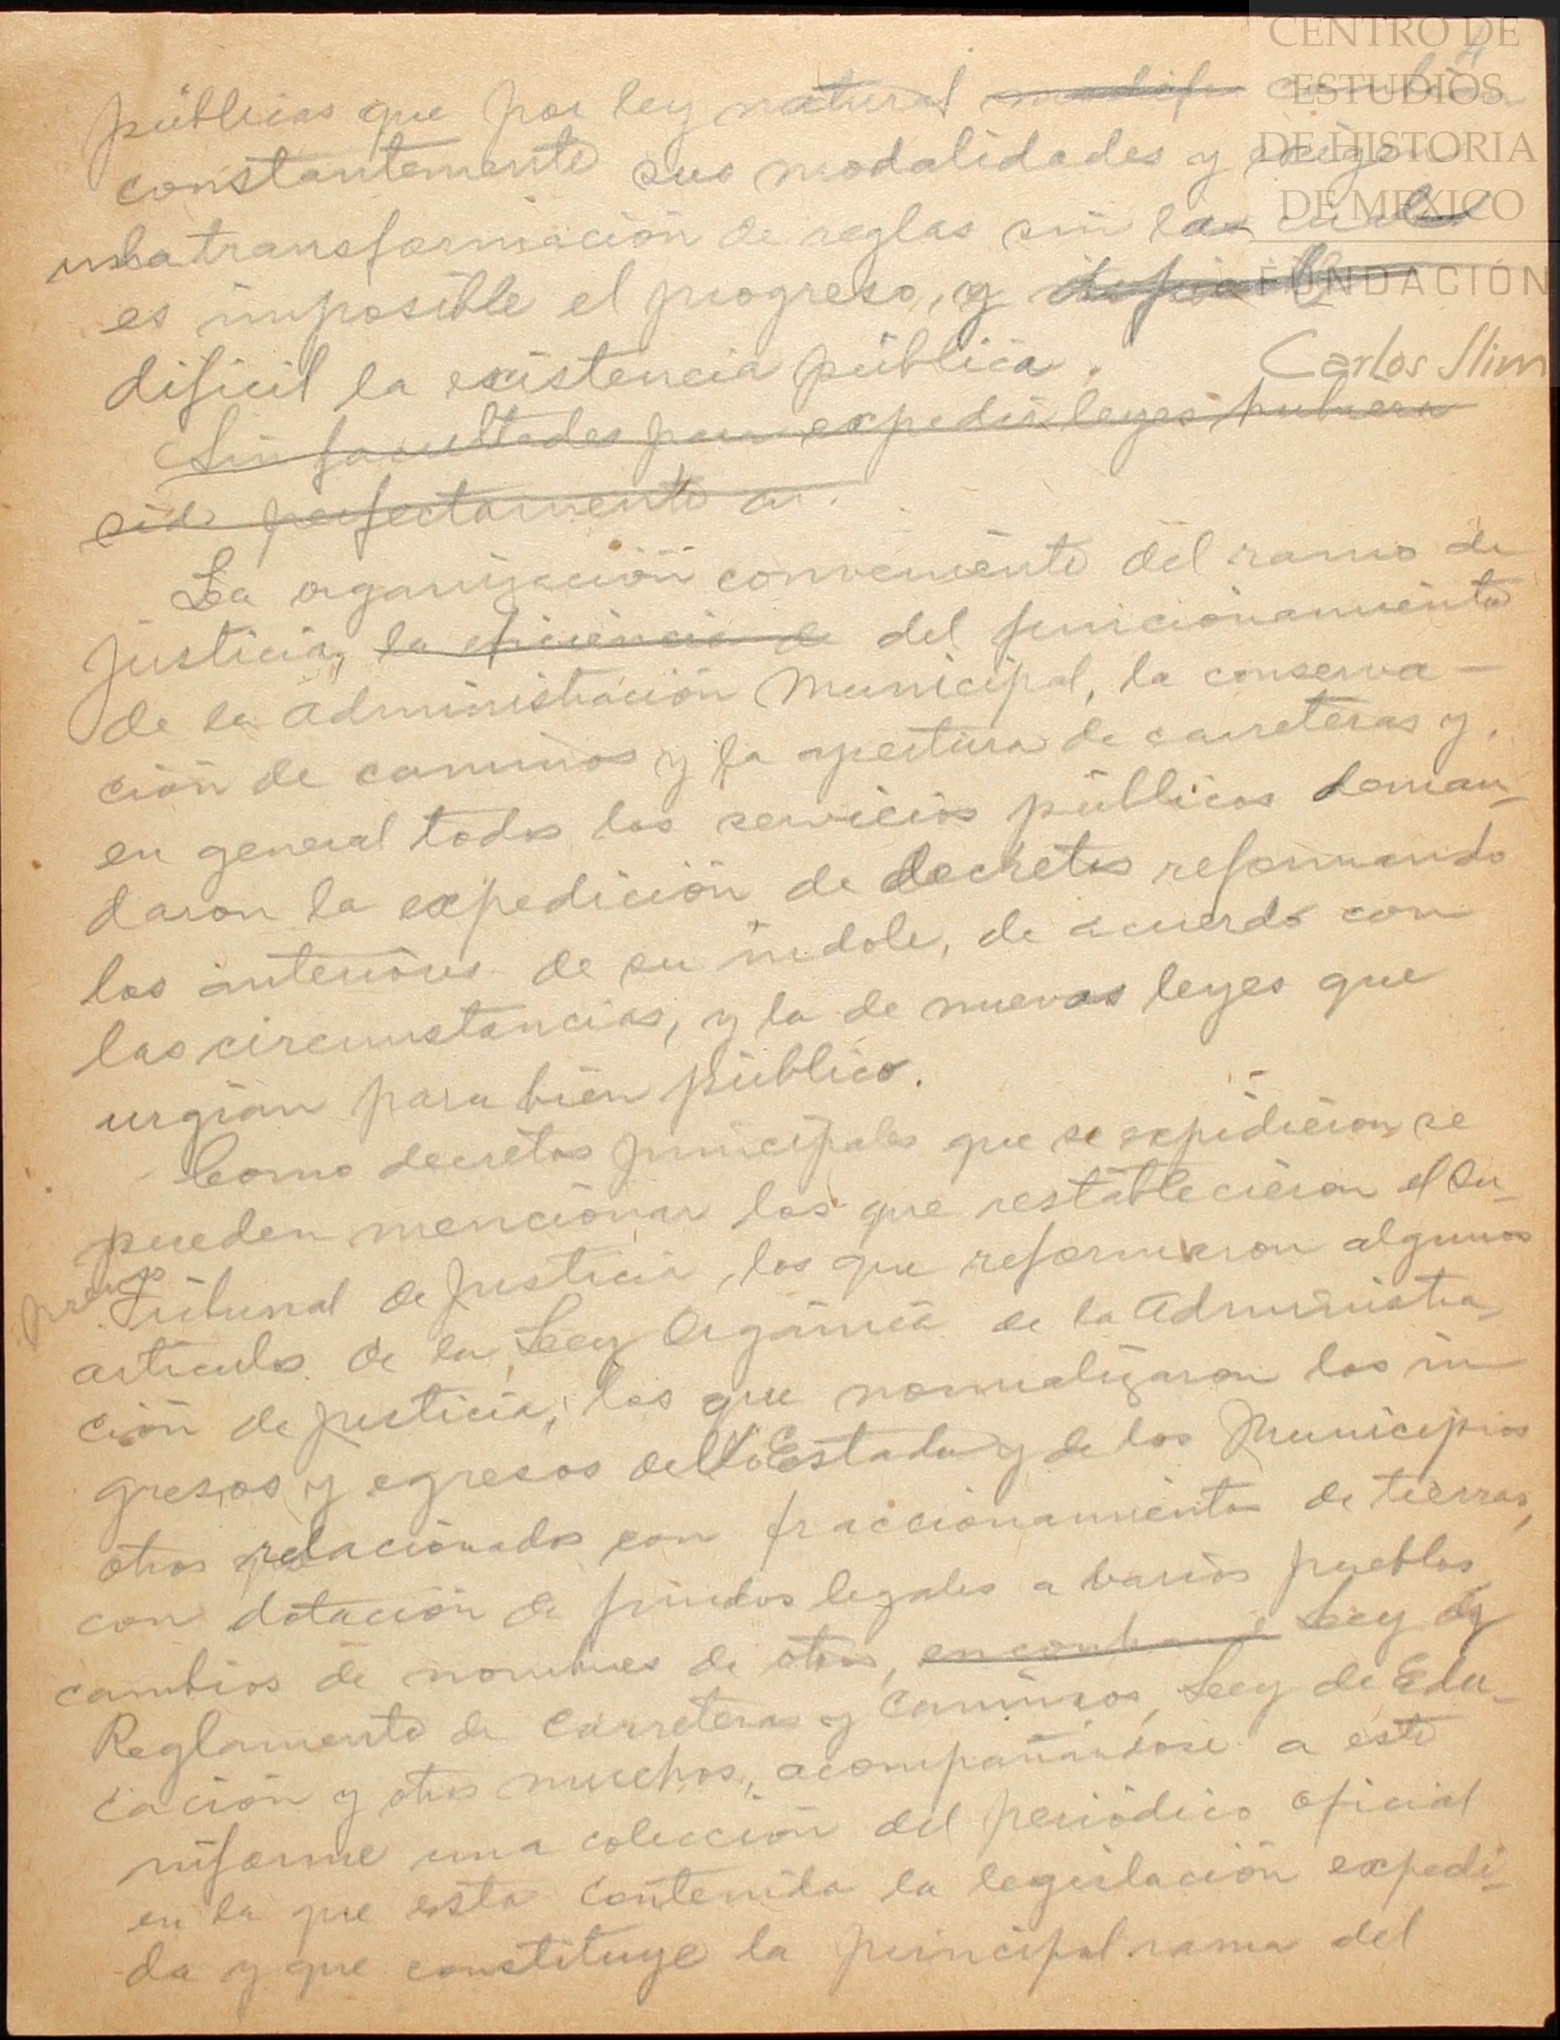 CENTRO DE
ESTUDIOS
DE HISTORIA
DE MEXICO
FUNDACIÓN
Carlos Slim
públicas que por ley natural modifi cambian
constantemente sus modalidades y exigen
una transformación de reglas sin las cuales
es imposible el progreso, y dificil
dificil la existencia pública.
Sin facultades para expedir leyes hubiera
sido perfectamente
La organización conveniente del ramo de
justicia, la eficiencia de del funcionamiento
de la administración Municipal, la conserva-
ción de caminos y la apertura de carreteras y,
en general todos los servicios públicos deman-
daron la expedición de decretos reformando
los anteriores de su indole, de acuerdo con
las circunstancias, y la de nuevas leyes que
urgian para bien público.
Como decretos principales que se expidieron, se
pueden mencionar los que restablecieron el Su-
premo Tribunal de Justicia, los que reformaron algunos
articulos de la Ley Orgánica de la Administra-
ción de Justicia, los que normalizaron los in
gresos y egresos del Estado y de los Municipios
otros relacionados con fraccionamientos de tierras,
con dotación de fundos legales a varios pueblos,
cambios de nombres de otros, Ley de
Reglamento de Carreteras y Caminos, Ley de Edu-
cación y otros muchos, acompañándose a este
informe una colección del periódico oficial
en la que esta contenida la legislación expedi-
da y que constituye la principal rama del